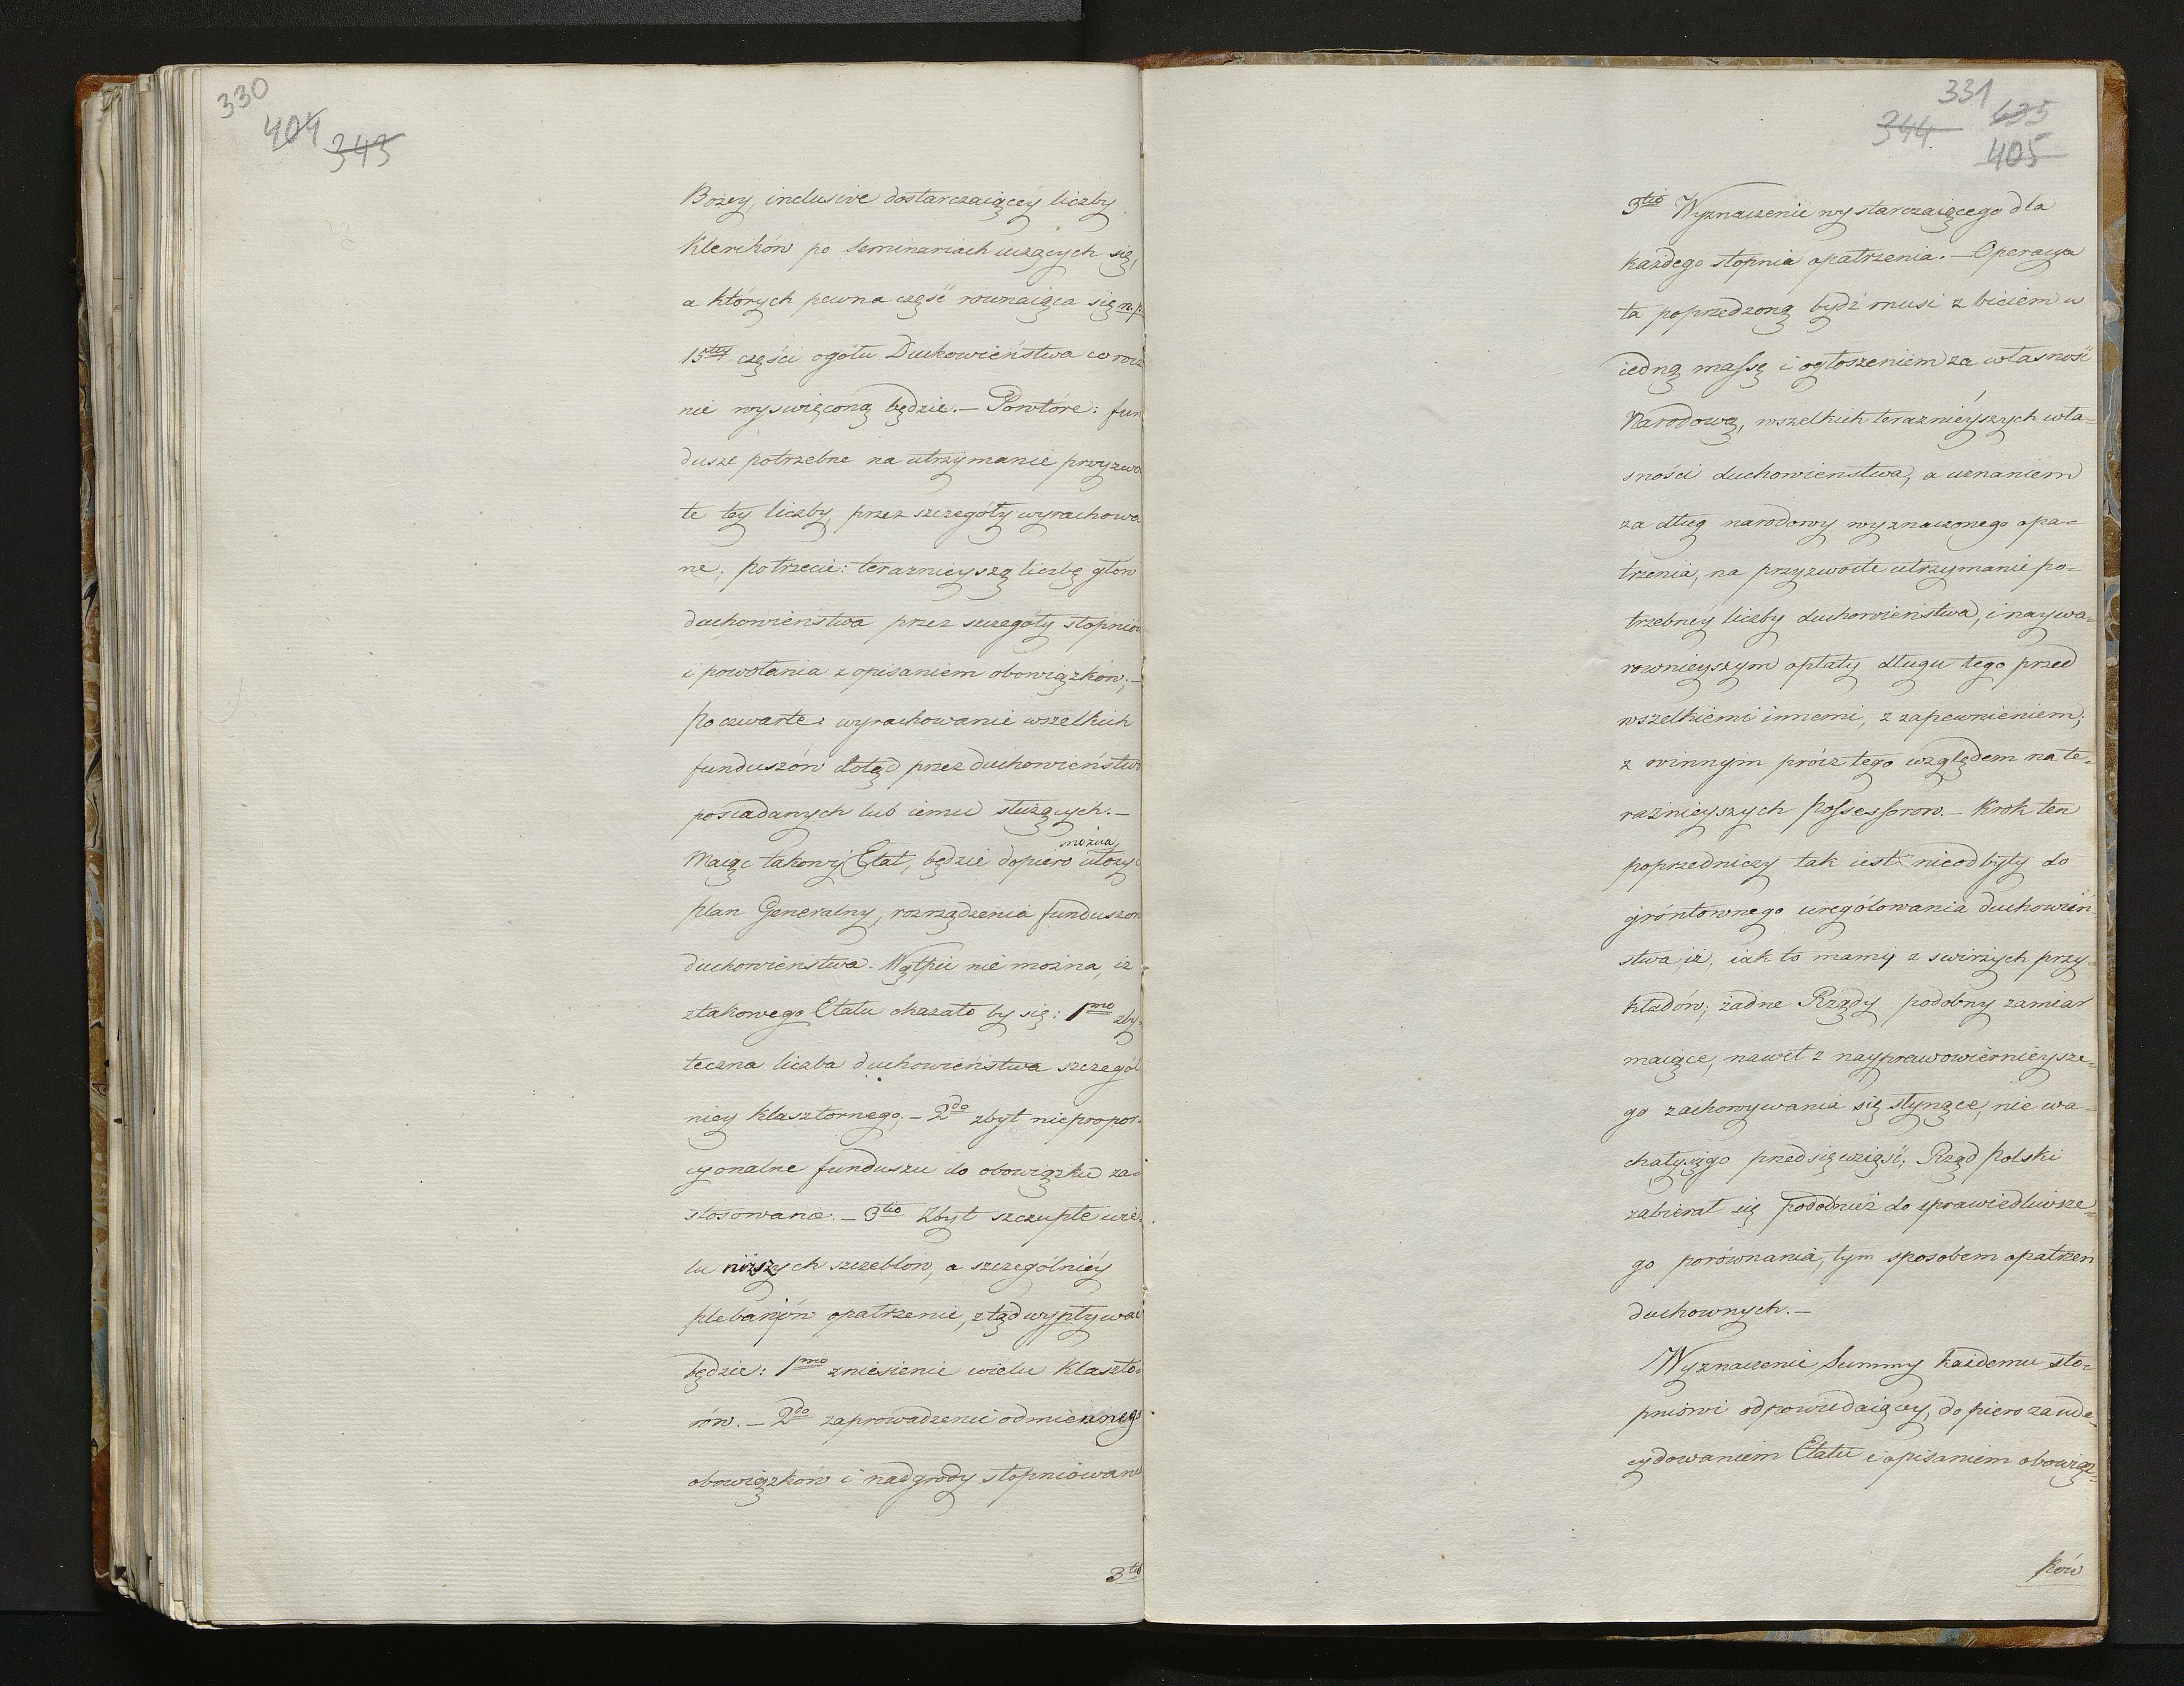 330
404 343
Bożey, inclusive dostarczaiącéy liczby
Klerików po Seminariach uczących się,
a których pewna część równaiąca się n.p.
15tey części ogółu Duchowieństwa co rocz
nie wyswięconą będzie. – Powtóre: fun
dusze potrzebne na utrzymanie przyzwo
te tey liczby, przez szczegóły wyrachowa
ne; potrzecie: teraznieyszą liczbę głów
duchowieństwa przez szczegóły stopniów
i powołania z opisaniem obowiązków; –
Po czwarte: wyrachowanie wszelkich
funduszów dotąd przez duchowieństwo
posiadanych lub iemu służących. –
można
Maiąc takowy Etat, będzie dopiero ułożyć
plan Generalny, rozrządzenia funduszów
duchowieństwa. Wątpić nie można, iż
z takowego Etatu okazało by się: 1mo zby-
teczna liczba duchowieństwa szczegól
niey Klasztornego; – 2do zbyt niepropor-
cyonalne funduszu do obowiązku za-
stosowanie. – 3tio Zbyt szczupłe wie-
lu niższych szczeblów, a szczególniéy
plebanów opatrzenie, ztąd wypływać
będzie: 1mo zniesienie wielu Klaszto-
rów. – 2do zaprowadzenie odmiennego
obowiązków i nadgrody stopniowania
3tio
331
344 435
405
3tio Wyznaczenie wystarczaiącego dla
każdego stopnia opatrzenia. – Operacya
ta poprzedzoną bydź musi z biciem w
iedną massę i ogłoszeniem za własność
Narodową, wszelkich teraznieyszych wła-
sności duchowienstwa, a uznaniem
za dług narodowy wyznaczonego opa-
trzenia, na przyzwoite utrzymanie po-
trzebnéy liczby duchowieństwa, i naywa-
rownieyszym opłaty długu tego przed
wszelkiemi innemi, z zapewnieniem;
z winnym prócz tego względem na te-
raznieyszych Possessorow. – Krok ten
poprzedniczy tak iest nieodbyty do
gróntownego urególowania duchowień
stwa, iż, iak to mamy z swieżych przy-
kładów; żadne Rządy podobny zamiar
maiące, nawet z nayprawowiernieysze-
go zachowywania się słynące, nie wa-
chały się go przedsięwziąść; Rząd Polski
zabierał się podobnież do sprawiedliwsze-
go porównania, tym sposobem opatrzeń
duchownych. –
Wyznaczenie Summy każdemu sto-
pniowi odpowiedaiącey, dopiero za ude-
cydowaniem Etatu i opisaniem obowiąz-
ków